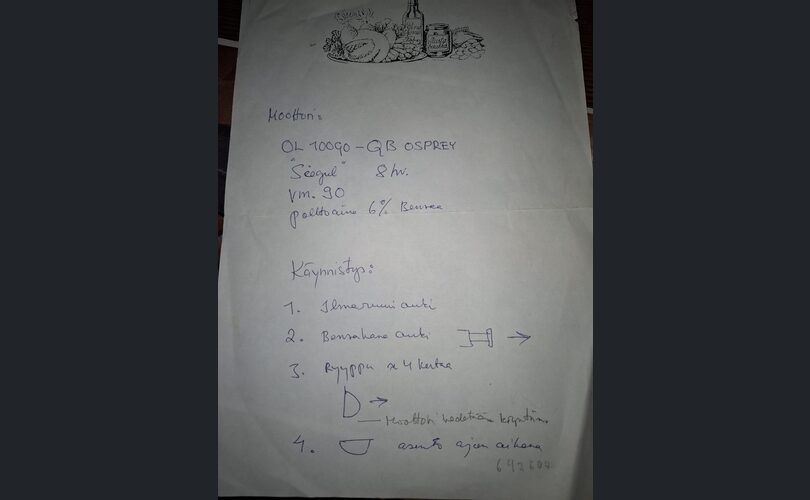 Moottori:
OL 10090-QB OSPREY
"Seegul" 8 hv.
vm. 90
polttoaine 6% Bensaa
Käynnistys:
1. Ilmaruuvi auki
2. Bensahana auki
3. Ryyppy x 4 kertaa
Moottori
4. asento ajon aikana